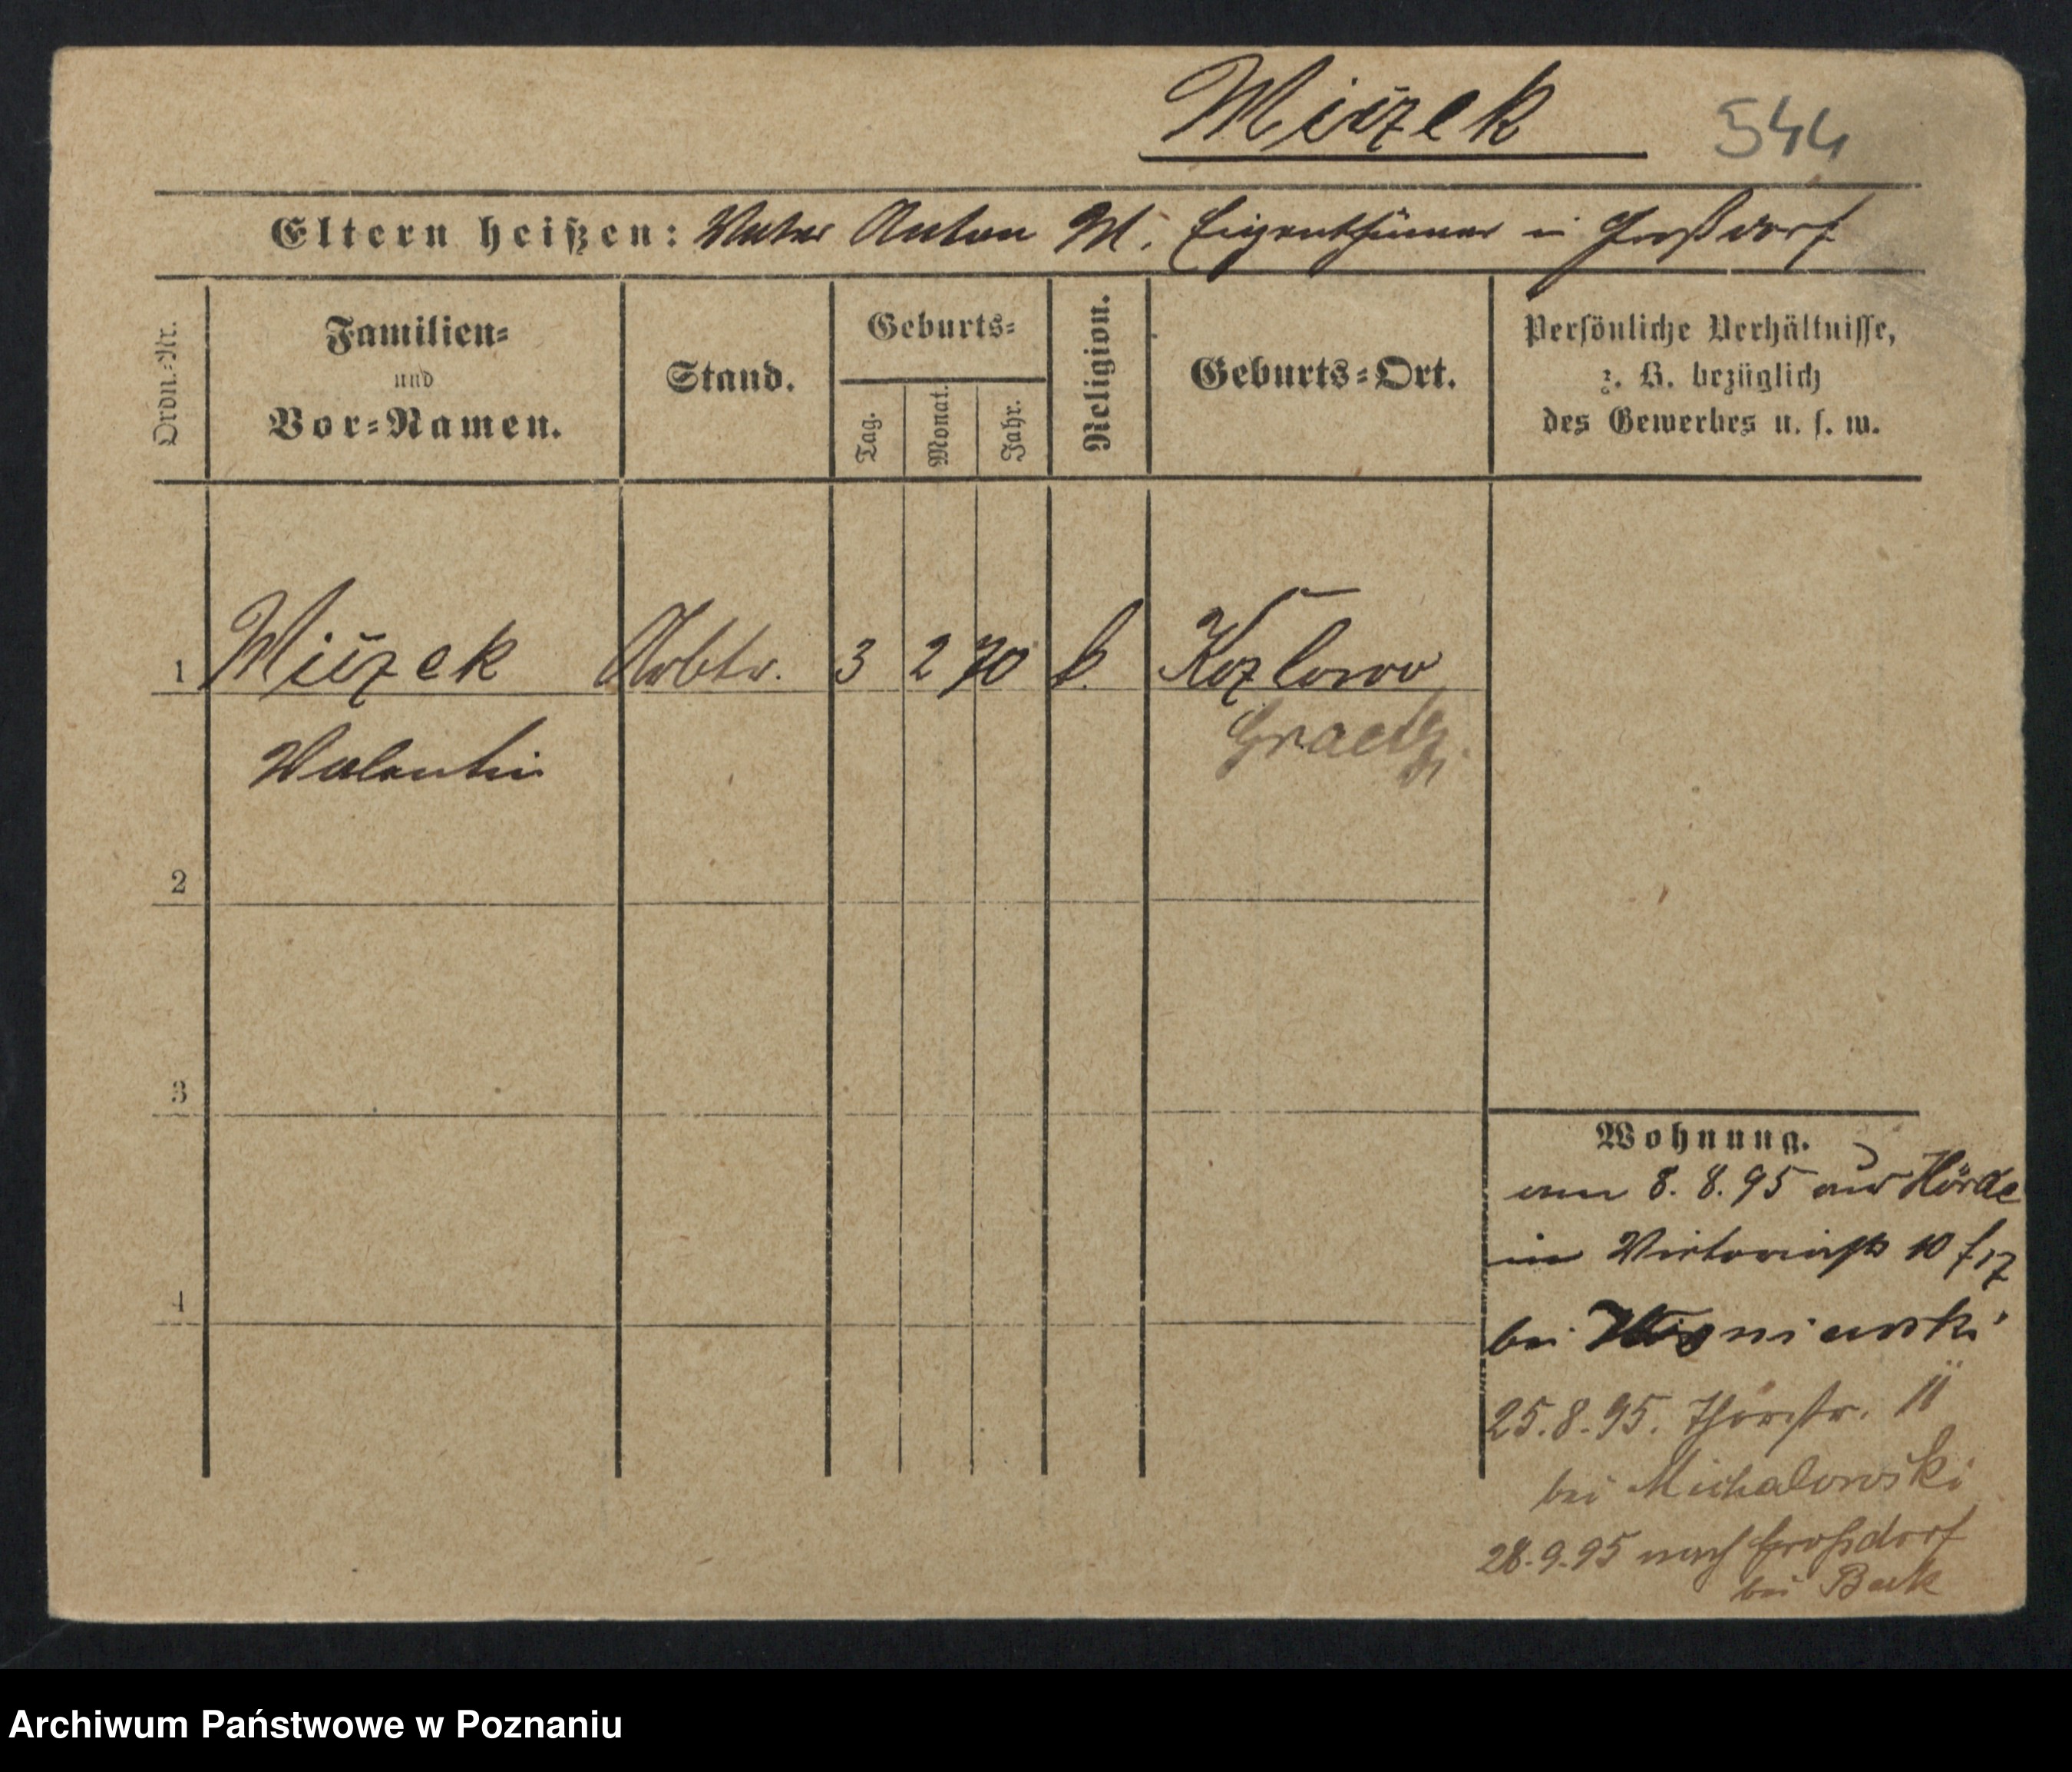 Miużek 544
Eltern heißen: Vater Anton M. Eigenthümer in Großdorf
Ordn.=Nr.
Familien=
und
Vor=Namen.
Stand.
Geburts=
Tag.
Monat.
Jahr.
Religion.
Geburts=Ort.
Persönliche Verhältnisse,
z. B. bezüglich
des Gewerbes u. s. w.
1 Miużek Arbtr. 3 2 70 k. Kozlowo
Valentin Graetz.
2
3
4
Wohnung.
am 8. 8. 95 aus Hörde
in Victoriastr 10
bei Wisniewski
25.8.95. Thorstr. 11
bei Michalowski
28.9.95 nach Großdorf
bei Buk
Archiwum Państwowe w Poznaniu